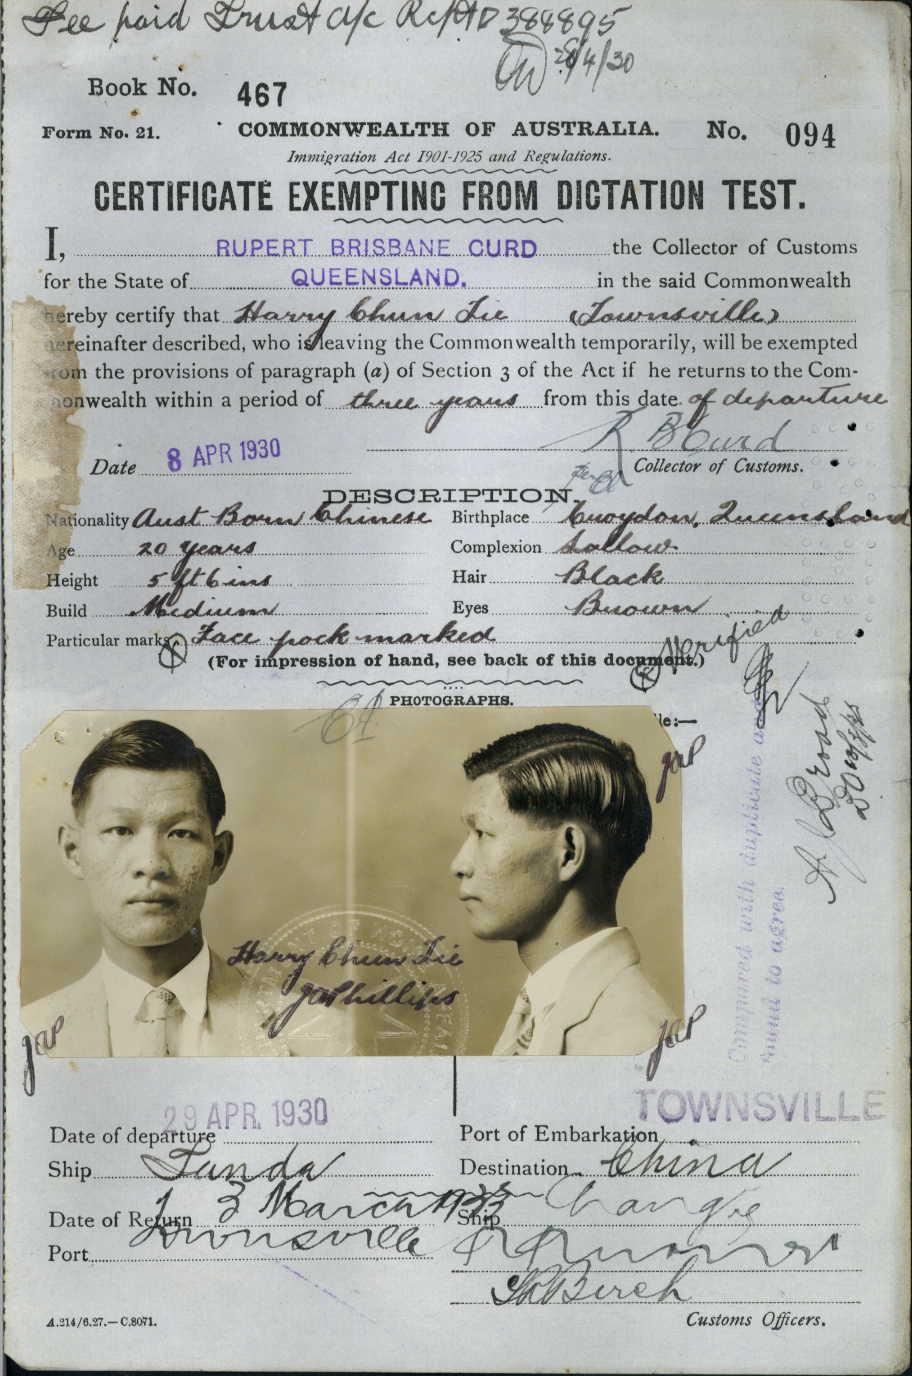 Fee paid Trust a/c Rcpt D 388895
28/4/30
Book No. 467
Form No. 21. COMMONWEALTH OF AUSTRALIA. No. 094
Immigration Act 1901-1925 and Regulations.
CERTIFICATE EXEMPTING FROM DICTATION TEST.
I, RUPERT BRISBANE CURD the Collector of Customs
for the State of QUEENSLAND. in the said Commonwealth
hereby certify that Harry Chun Tie (Townsville)
hereinafter described, who is leaving the Commonwealth temporarily, will be exempted
from the provisions of paragraph (a) of Section 3 of the Act if he returns to the Com-
monwealth within a period of three years from this date of departure
R B Curd
Date 8 APR 1930 Collector of Customs.
DESCRIPTION.
Nationality Aust Born Chinese Birthplace Croydon, Queensland
Age 20 years Complexion Sallow
Height 5 ft 6 ins Hair Black
Build Medium Eyes Brown
Particular marks Face pock marked
(For impression of hand, see back of this document.)
Verified
PHOTOGRAPHS.
le:—
JAP
A. J. Broad
Compared with duplicate and
found to agree.
Harry Chun Tie
JAPhillips
JAP
JAP
29 APR. 1930 TOWNSVILLE
Date of departure Port of Embarkation
Ship Tanda Destination China
Date of Return 3 March 1933 Ship Changte
Port Townsville
Birch
A.214/6.27.—C.8071. Customs Officers.